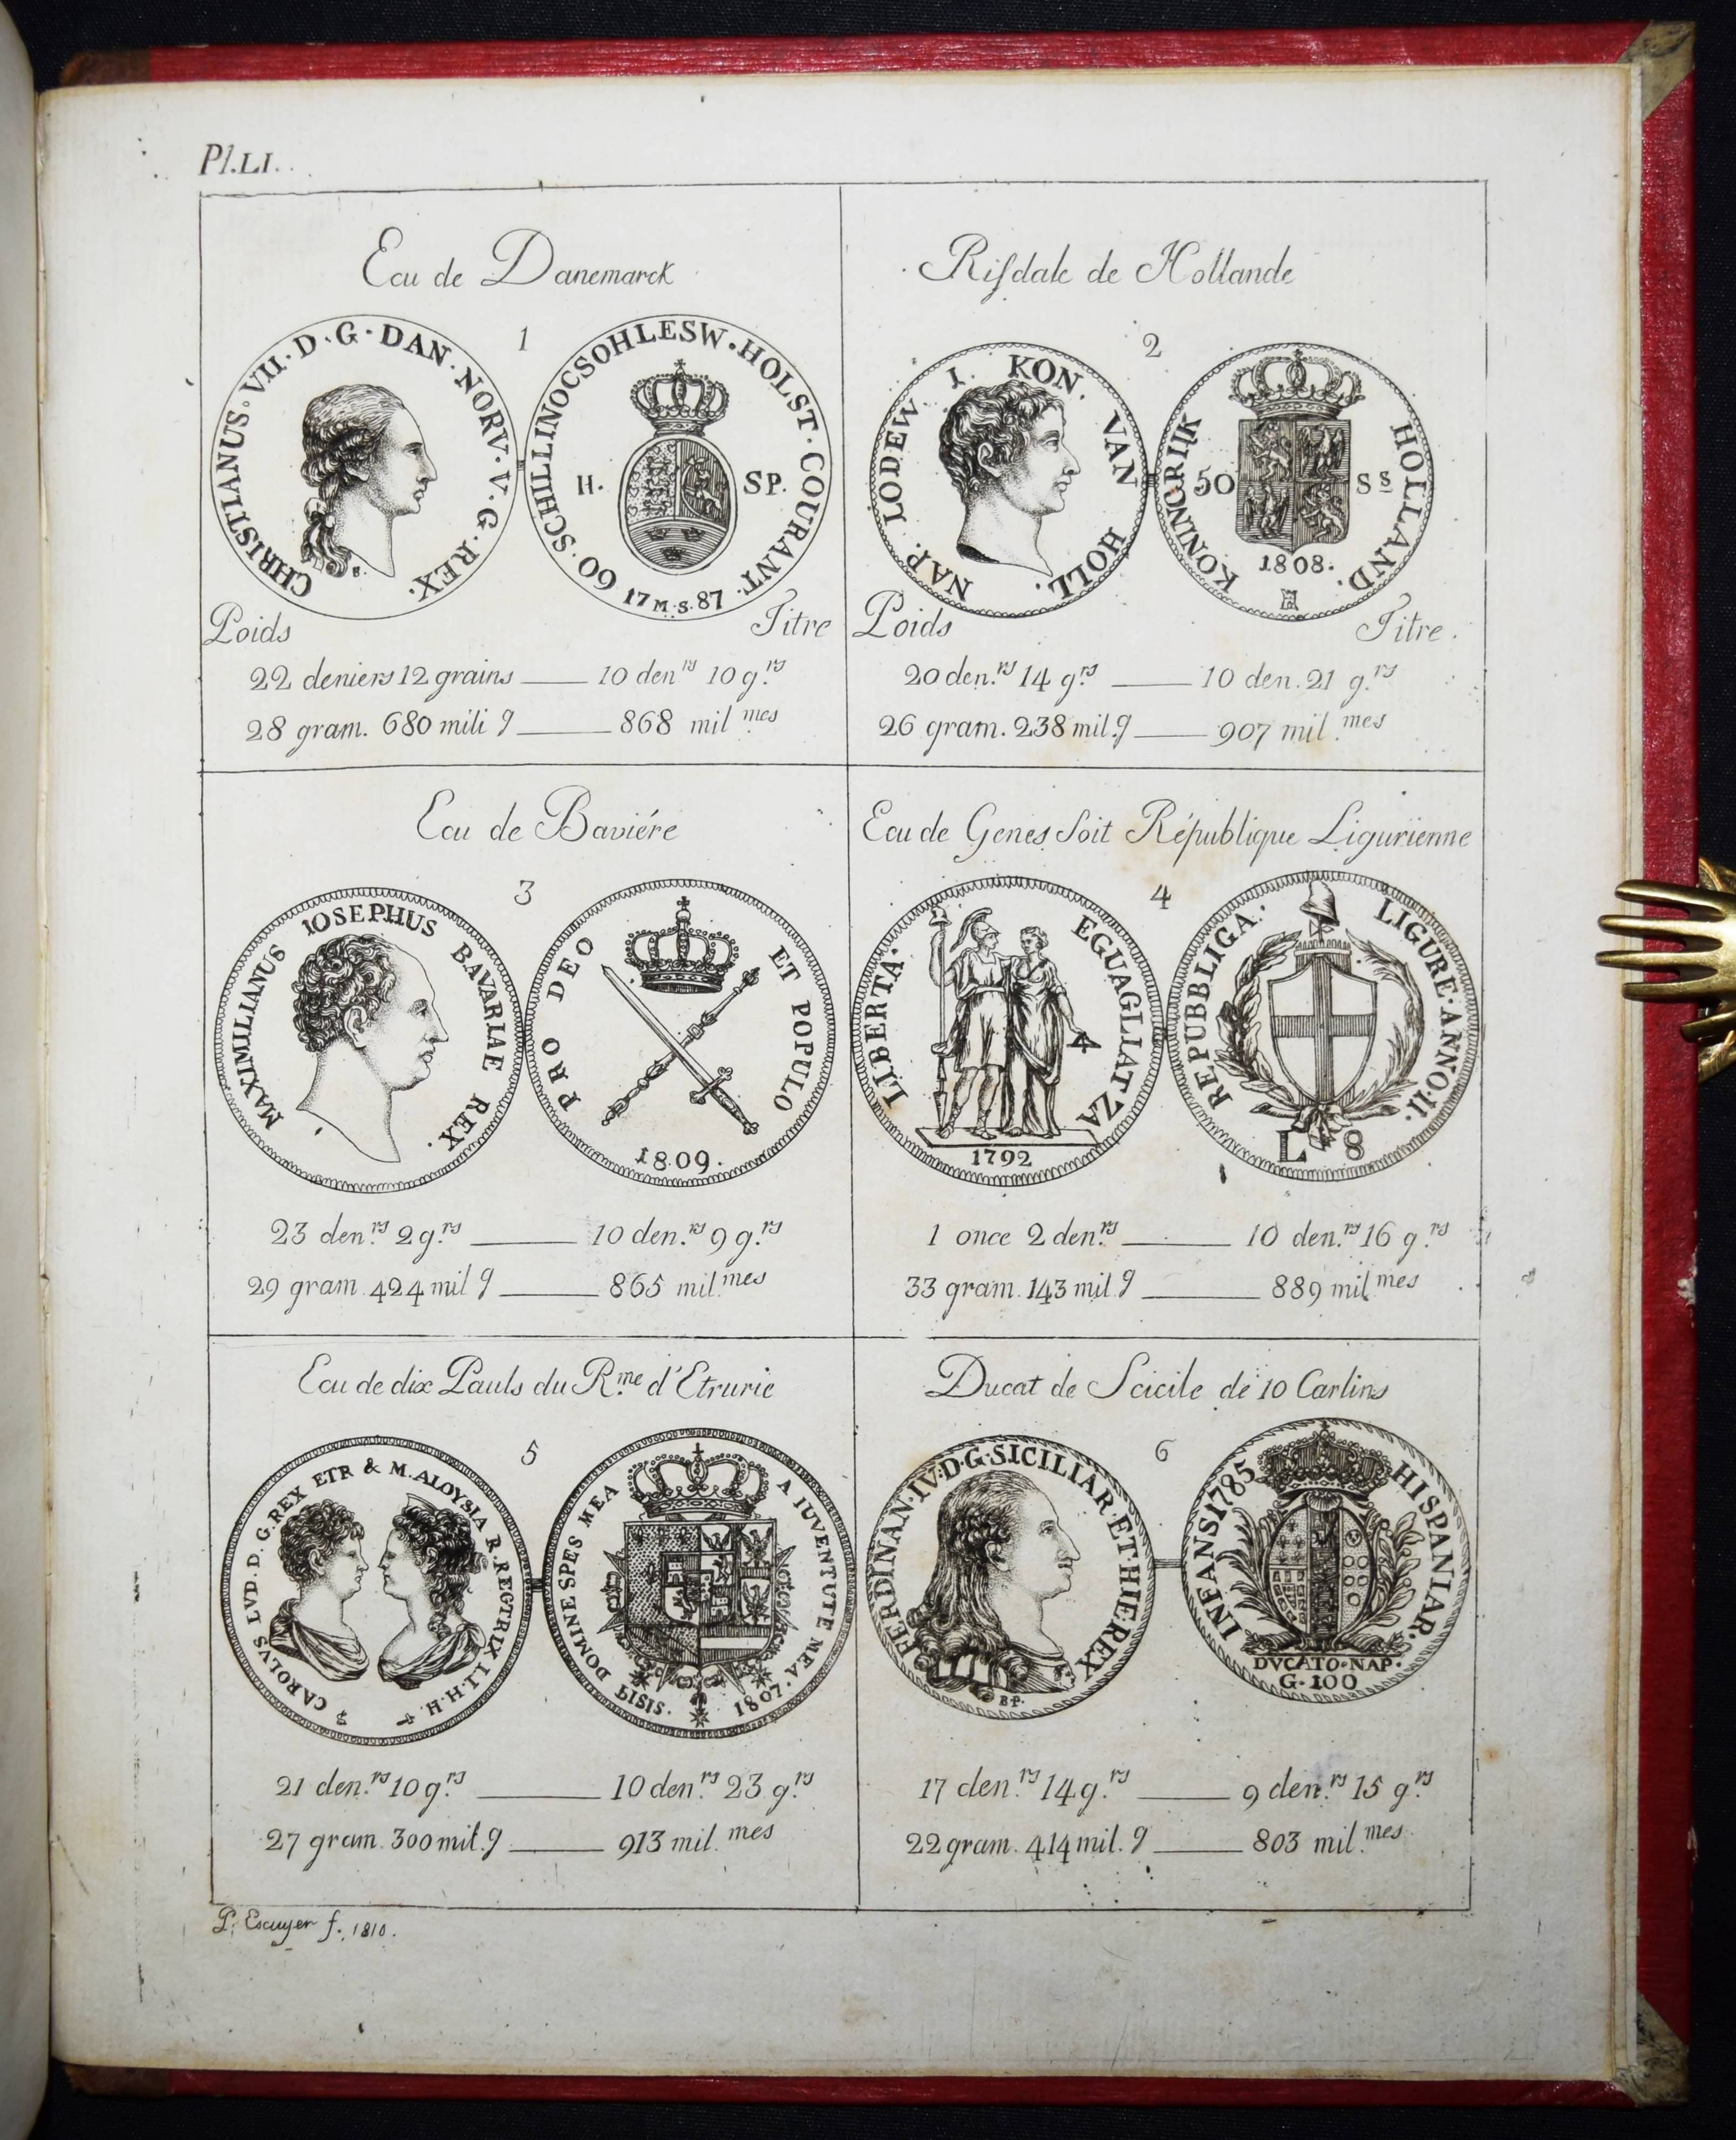 Pl. LI.
Ecu de Danemarck
1
CHRISTIANUS · VII · D · G · DAN · NORV · V · G · REX ·
60 · SCHILLINOCSOHLESW · HOLST · COURANT ·
H · SP.
17 M · S · 87
B.
Poids Titre
22 deniers 12 grains — 10 den rs 10 g.rs
28 gram. 680 mili g — 868 mil mes
Risdale de Hollande
2
NAP. LODEW. I. KON. VAN HOLL.
KONINGRIJK HOLLAND.
50 Ss
1808.
Poids Titre.
20 den.rs 14 g.rs — 10 den. 21 g.rs
26 gram. 238 mil. g — 907 mil. mes
Ecu de Baviére
3
MAXIMILIANUS IOSEPHUS BAVARIAE REX.
PRO DEO ET POPULO
1809.
23 den.rs 2 g.rs — 10 den.rs 9 g.rs
29 gram. 424 mil g — 865 mil. mes
Ecu de Genes Soit République Ligurienne
4
LIBERTA · EGUAGLIATZA
1792
REPUBBLIGA · LIGURE · ANNO · II ·
L 8
1 once 2 den.rs — 10 den.rs 16 g.rs
33 gram. 143 mil. g — 889 mil mes
Ecu de dix Pauls du R.me d'Etrurie
5
CAROLVS LVD. D. G. REX ETR & M. ALOYSIA R. RECTRIX I.I. H. H.
DOMINE SPES MEA A IUVENTUTE MEA
PISIS. 1807.
21 den.rs 10 g.rs — 10 den.rs 23 g.rs
27 gram. 300 mil. g — 913 mil. mes
Ducat de Scicile de 10 Carlins
6
FERDINAN · IV · D · G · SICILIAR · ET · HIE · REX
B·P.
INFANS 1785 HISPANIAR ·
DVCATO · NAP ·
G · 100
17 den.rs 14 g.rs — 9 den.rs 15 g.rs
22 gram. 414 mil. g — 803 mil. mes
P. Escuyer f. 1810.